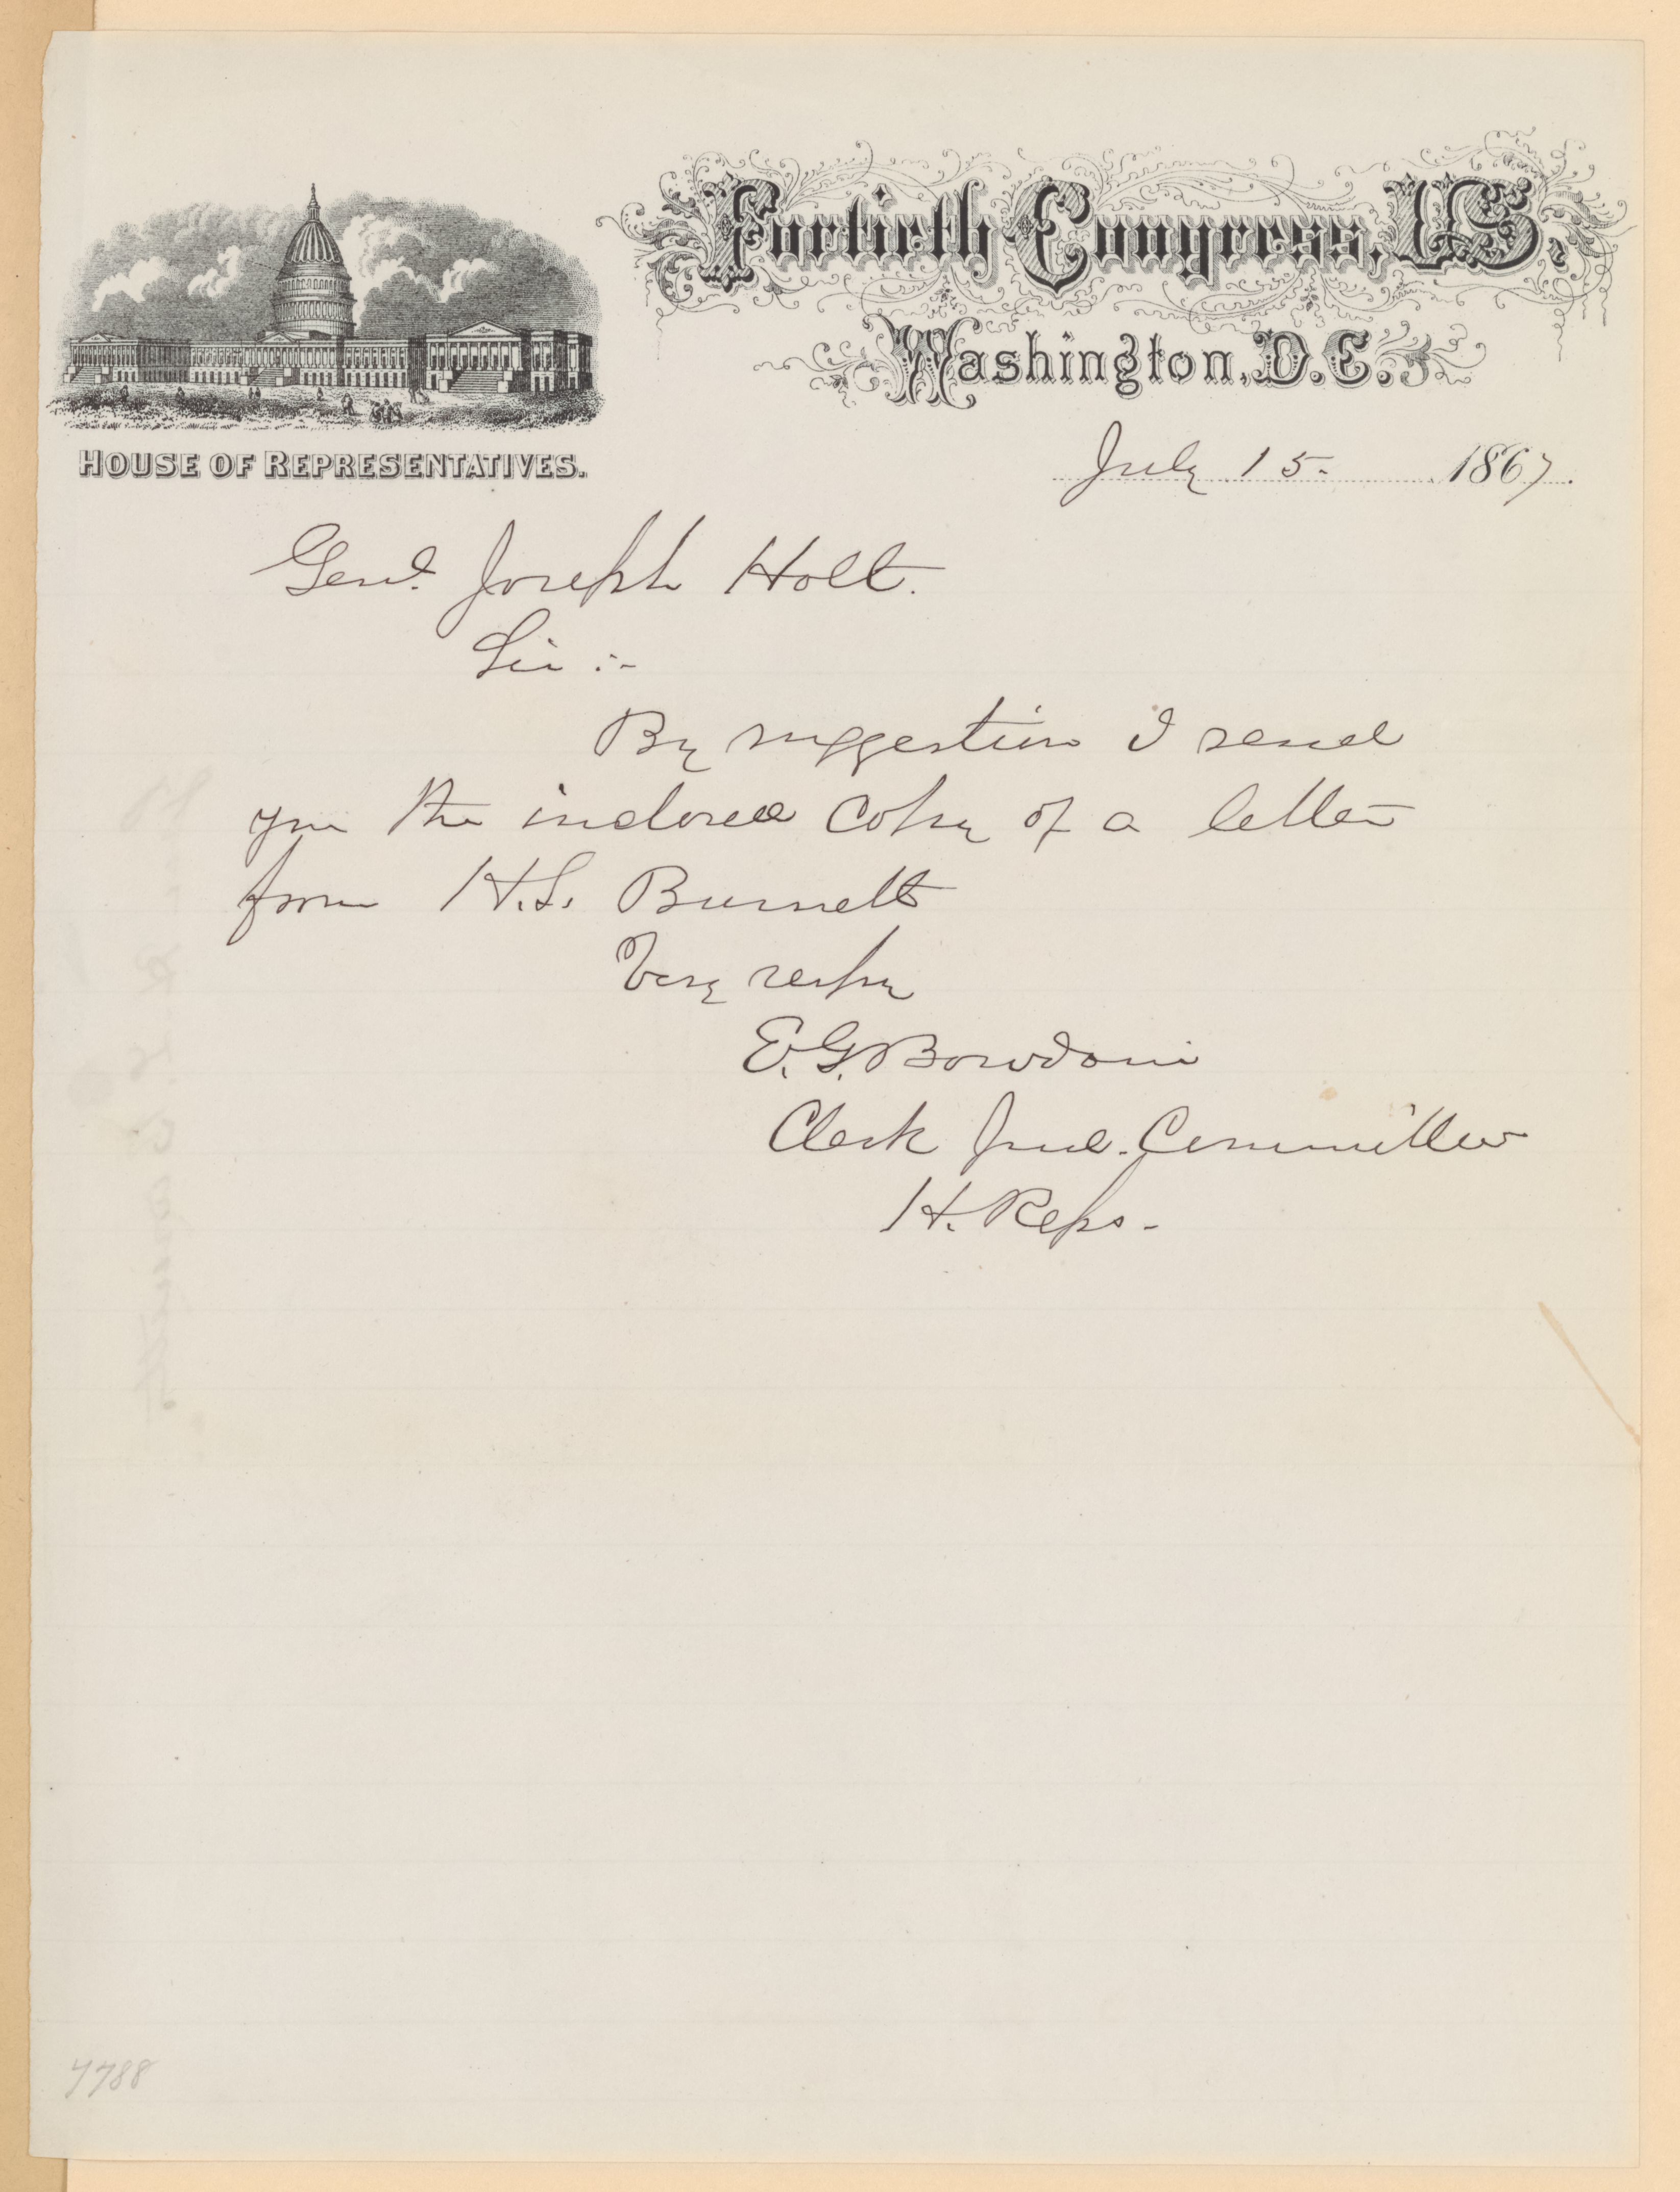 Fortieth Congress, U.S.
Washington, D.C.
HOUSE OF REPRESENTATIVES.
July 15. 1867.
Genl. Joseph Holt.
Sir :-
By suggestion I send
you the inclosed copy of a letter
from H.L. Burnett
Very respy
E. G. Bowdoin
Clerk Jud. Committee
H. Reps-
7788